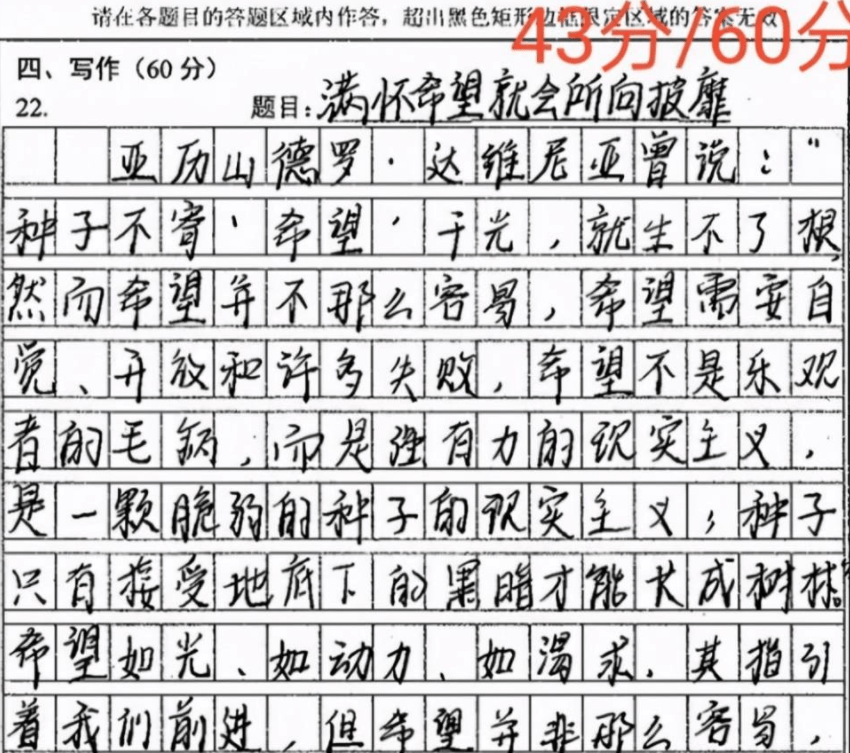 请在各题目的答题区域内作答，超出黑色矩形边框限定区域的答案无效
43分/60分
四、写作（60分）
22. 题目：满怀希望就会所向披靡
亚历山德罗·达维尼亚曾说：“
种子不寄‘希望’于光，就生不了根，
然而希望并不那么容易，希望需要自
觉、开放和许多失败，希望不是乐观
者的毛病，而是强有力的现实主义，
是一颗脆弱的种子的现实主义，种子
只有接受地底下的黑暗才能长成树林。”
希望如光、如动力、如渴求，其指引
着我们前进，但希望并非那么容易，